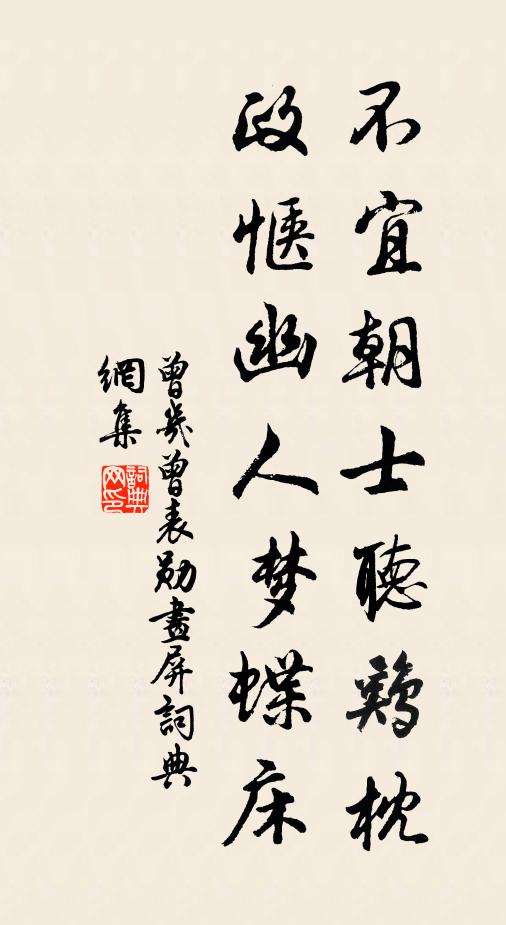 不宜朝士聽鷄枕
政愜幽人梦蝶床
曾幾曾表勛畫屏詞典
網集
詞典网印